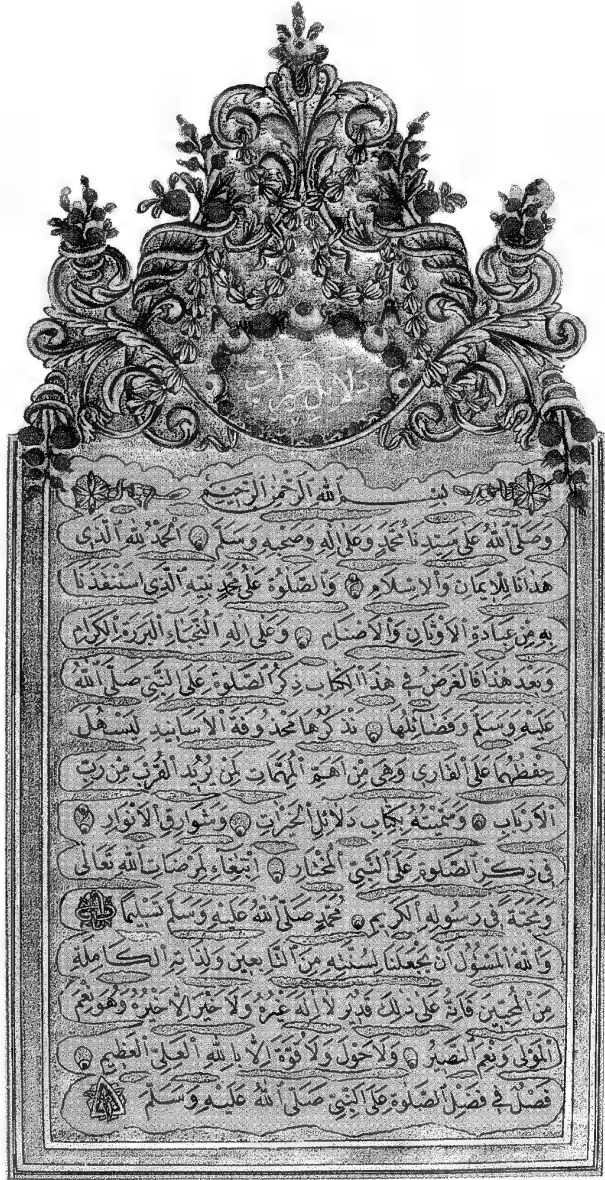 دَلَائِلُ الْخَيْرَاتِ
بِسْمِ اللّٰهِ الرَّحْمٰنِ الرَّحِيمِ
وَصَلَّى اللّٰهُ عَلَى سَيِّدِنَا مُحَمَّدٍ وَعَلَى اٰلِهِ وَصَحْبِهِ وَسَلَّمَ اَلْحَمْدُ لِلّٰهِ الَّذِى
هَدَانَا لِلْاِيمَانِ وَالْاِسْلَامِ وَالصَّلٰوةُ عَلَى مُحَمَّدٍ نَبِيِّهِ الَّذِى اسْتَنْقَذَنَا
بِهِ مِنْ عِبَادَةِ الْاَوْثَانِ وَالْاَصْنَامِ وَعَلَى اٰلِهِ النُّجَبَاءِ الْبَرَرَةِ الْكِرَامِ
وَبَعْدُ هٰذَا فَالْغَرَضُ فِى هٰذَا الْكِتَابِ ذِكْرُ الصَّلٰوةِ عَلَى النَّبِيِّ صَلَّى اللّٰهُ
عَلَيْهِ وَسَلَّمَ وَفَضَائِلُهَا نَذْكُرُهَا مَحْذُوفَةَ الْاَسَانِيدِ لِيَسْهُلَ
حِفْظُهَا عَلَى الْقَارِى وَهِىَ مِنْ اَهَمِّ الْمُهِمَّاتِ لِمَنْ يُرِيدُ الْقُرْبَ مِنْ رَبِّ
الْاَرْبَابِ وَسَمَّيْتُهُ بِكِتَابِ دَلَائِلِ الْخَيْرَاتِ وَشَوَارِقِ الْاَنْوَارِ
فِى ذِكْرِ الصَّلٰوةِ عَلَى النَّبِيِّ الْمُخْتَارِ اِبْتِغَاءً لِمَرْضَاتِ اللّٰهِ تَعَالٰى
وَمَحَبَّةً فِى رَسُولِهِ الْكَرِيمِ مُحَمَّدٍ صَلَّى اللّٰهُ عَلَيْهِ وَسَلَّمَ تَسْلِيمًا
وَاللّٰهُ الْمَسْؤُلُ اَنْ يَجْعَلَنَا لِسُنَّتِهِ مِنَ التَّابِعِينَ وَلِذَاتِهِ الْكَامِلَةِ
مِنَ الْمُحِبِّينَ فَاِنَّهُ عَلَى ذٰلِكَ قَدِيرٌ لَا اِلٰهَ غَيْرُهُ وَلَا خَيْرَ اِلَّا خَيْرُهُ وَهُوَ نِعْمَ
الْمَوْلٰى وَنِعْمَ الْمَصِيرُ وَلَا حَوْلَ وَلَا قُوَّةَ اِلَّا بِاللّٰهِ الْعَلِيِّ الْعَظِيمِ
فَصْلٌ فِى فَضْلِ الصَّلٰوةِ عَلَى النَّبِيِّ صَلَّى اللّٰهُ عَلَيْهِ وَسَلَّمَ